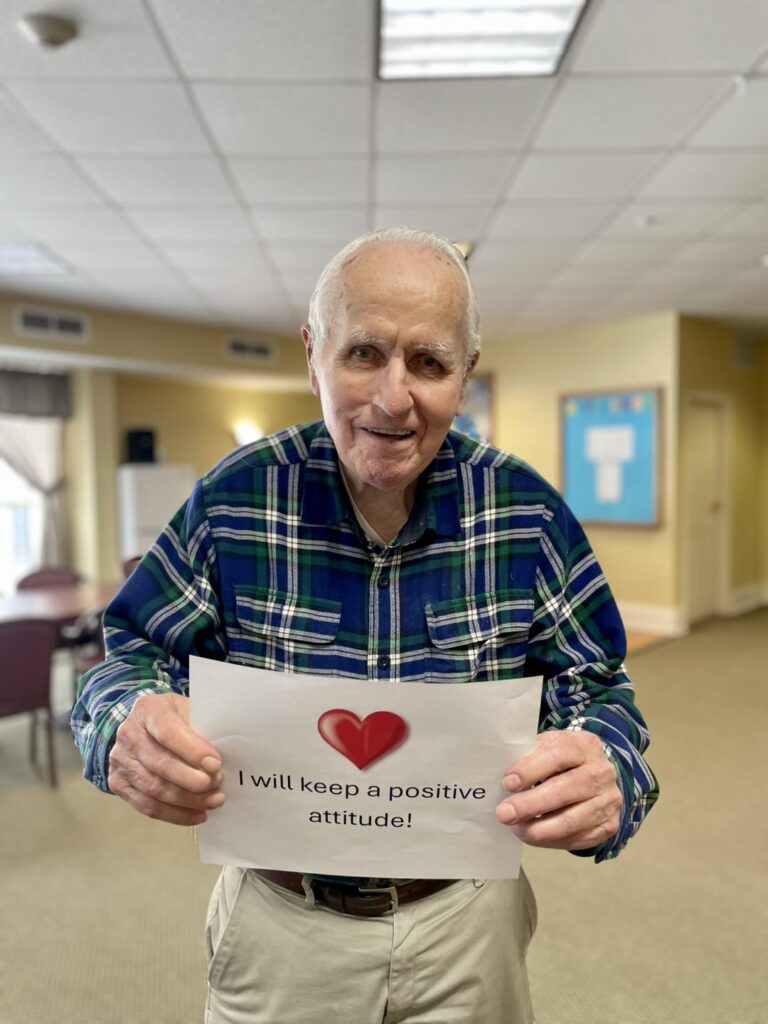 I will keep a positive
attitude!